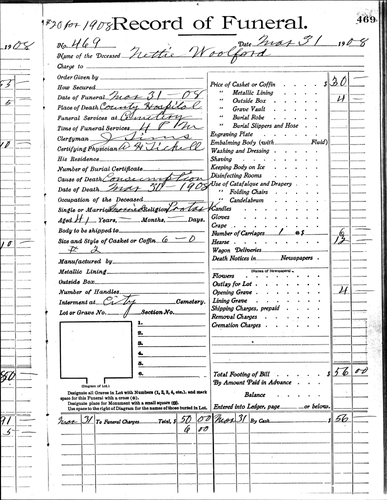 1908
$20 for 1908 Record of Funeral. 469
No. 469 Date Mar 31 1908
Name of the Deceased Nettie Woolford
Charge to
Order Given by
How Secured
Date of Funeral Mar 31-08
Place of Death County Hospital
Funeral Services at Cemetery
Time of Funeral Services 4 P M
Clergyman J Sims
Certifying Physician A H Tickell
His Residence
Number of Burial Certificate
Cause of Death Consumption
Date of Death Mar 30 - 1908
Occupation of the Deceased
Single or Married Married Religion
Aged 41 Years — Months, — Days.
Body to be shipped to
Size and Style of Casket or Coffin 6-0
# 2
Manufactured by
Metallic Lining
Outside Box
Number of Handles
Interment at City Cemetery.
Lot or Grave No. Section No.
1.
2.
3.
4.
5.
6.
(Diagram of Lot.)
Designate all Graves in Lot with Numbers (1, 2, 3, 4, etc.), and mark
space for this Funeral with a cross (x).
Designate place for Monument with a small square (□).
Use space to the right of Diagram for the names of those buried in Lot.
Price of Casket or Coffin $ 30
" Metallic Lining
" Outside Box 4
" Grave Vault
" Burial Robe
" Burial Slippers and Hose
Engraving Plate
Embalming Body (with Fluid)
Washing and Dressing
Shaving
Keeping Body on Ice
Disinfecting Rooms
Use of Catafalque and Drapery
" Folding Chairs
" Candelabrum
Candles
Gloves
Crape
Number of Carriages 1 @ $ 6
Hearse 12
Wagon Deliveries
Death Notices in Newspapers
(Names of Newspapers)
Flowers
Outlay for Lot
Opening Grave 4
Lining Grave
Shipping Charges, prepaid
Removal Charges
Cremation Charges
Total Footing of Bill $ 56 00
By Amount Paid in Advance
Balance
Entered into Ledger, page or below.
Mar 31 To Funeral Charges Total, $ 50 00 Mar 31 By Cash $ 56
6 00